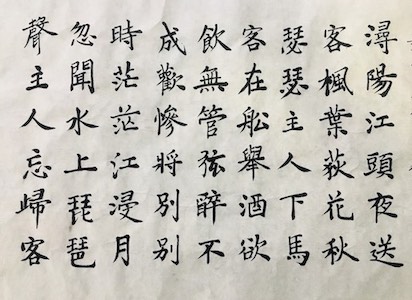 潯陽江頭夜送
客楓葉荻花秋
瑟瑟主人下馬
客在舩舉酒欲
飲無管弦醉不
成歡慘將別別
時茫茫江浸月
忽聞水上琵琶
聲主人忘歸客